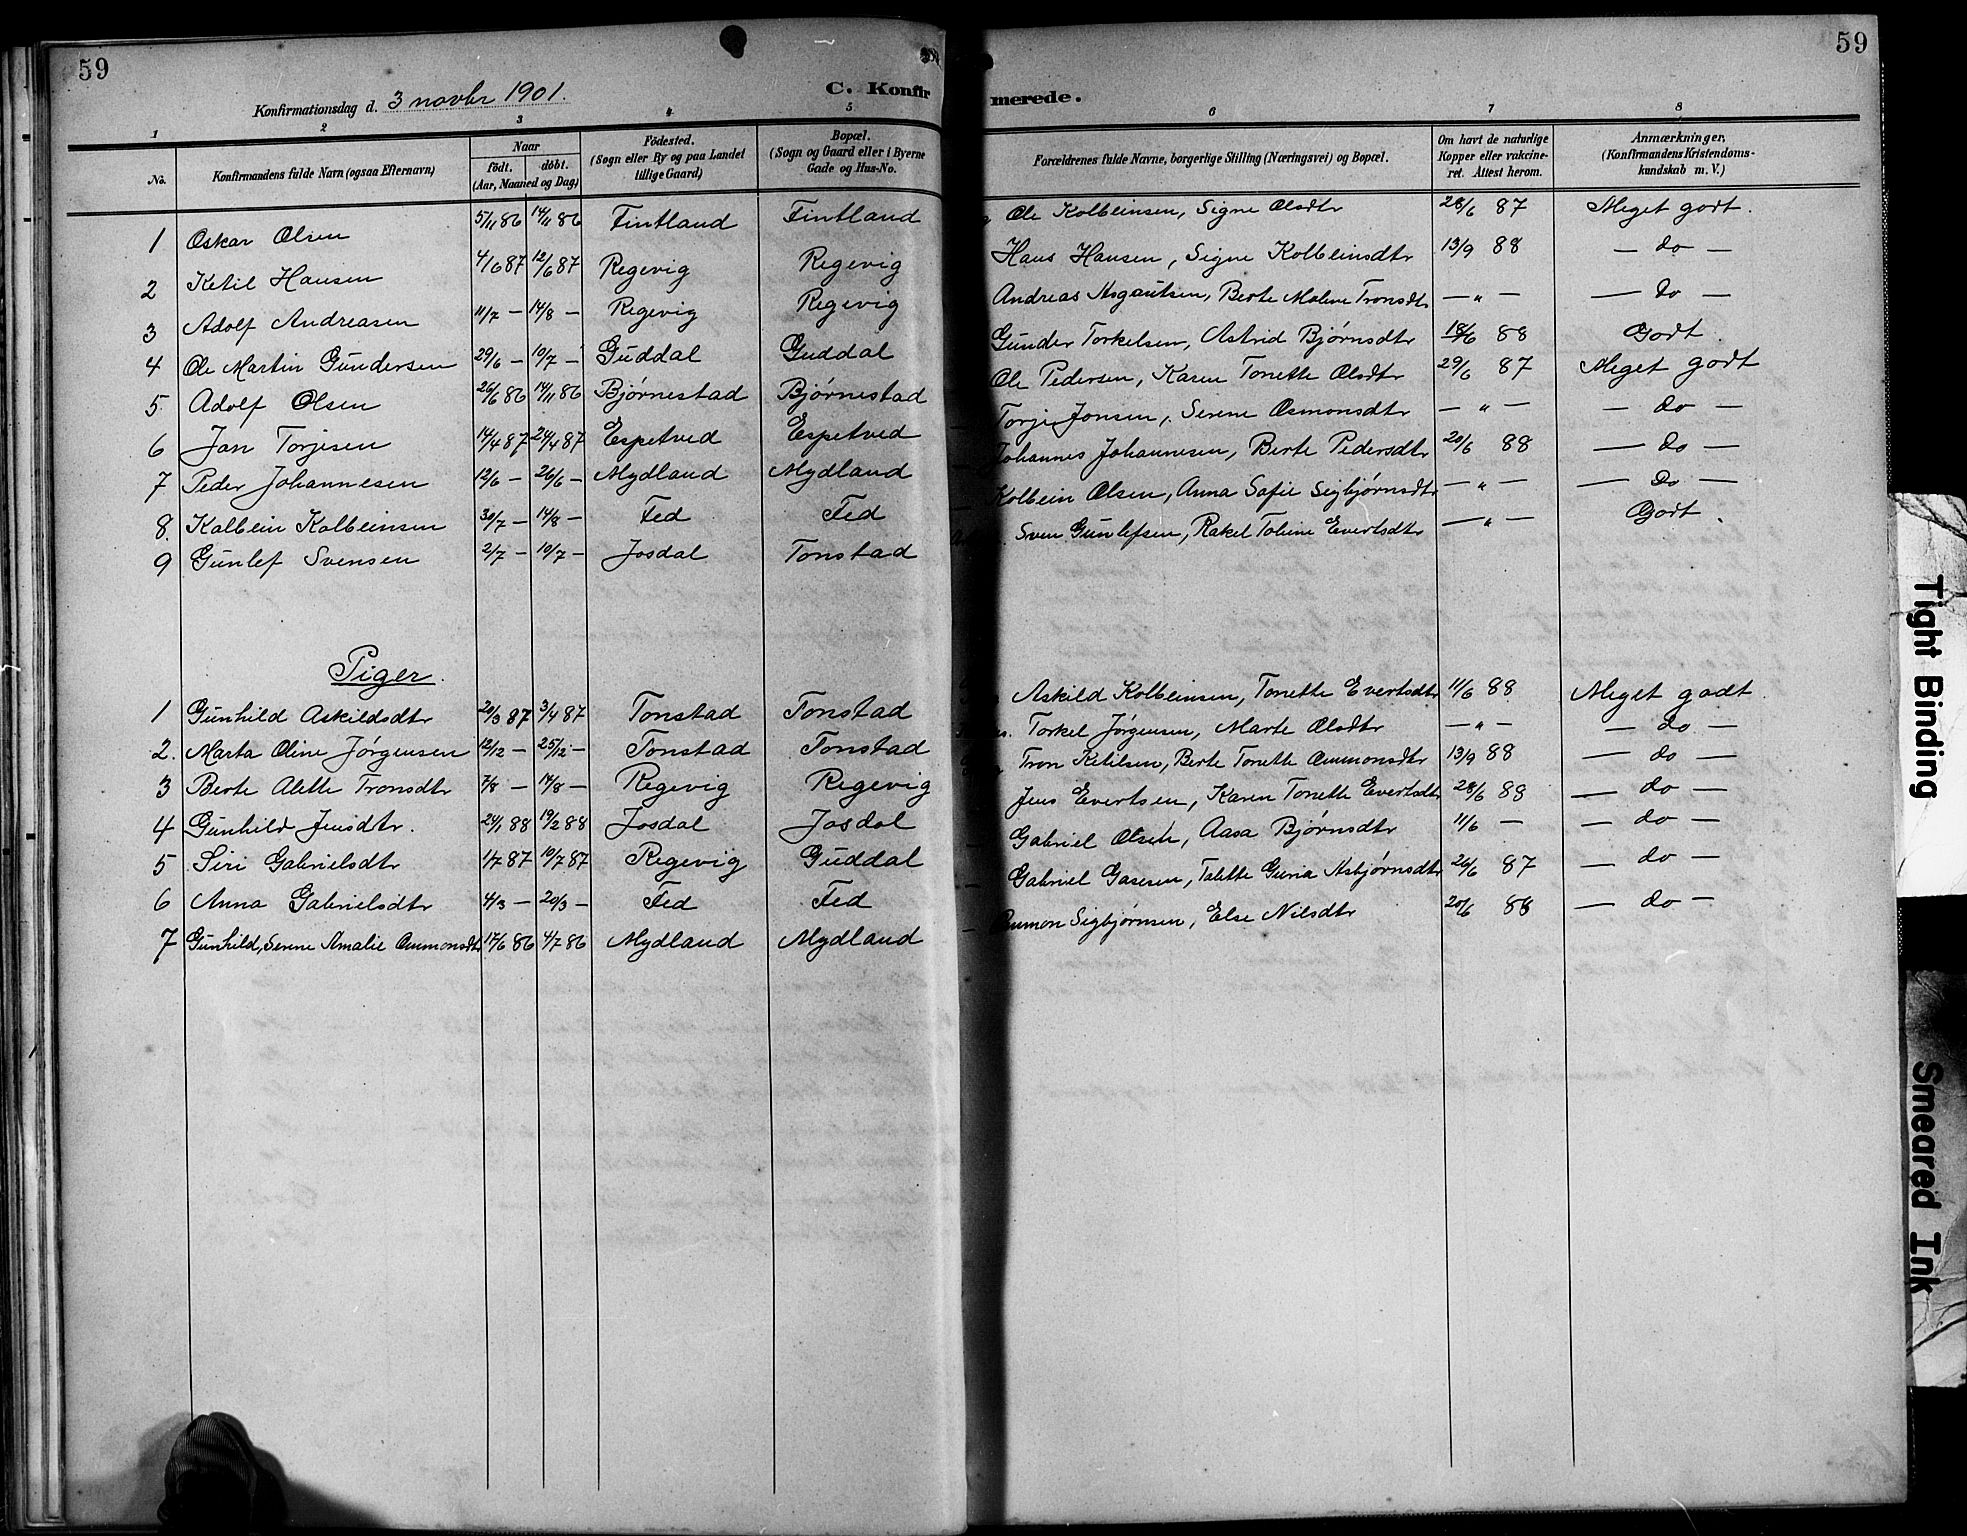 59
59
Konfirmationsdag d. 3 novbr 1901.
C. Konfirmerede.
1 2 3 4 5 6 7 8
No.
Konfirmandens fulde Navn (ogsaa Efternavn)
Naar
födt. döbt.
(Aar, Maaned og Dag)
Födested.
(Sogn eller By og paa Landet
tillige Gaard)
Bopæl.
(Sogn og Gaard eller i Byerne
Gade og Hus-No.
Forældrenes fulde Navne, borgerlige Stilling (Næringsvei) og Bopæl.
Om havt de naturlige
Kopper eller vakcine-
ret. Attest herom.
Anmærkninger,
(Konfirmandens Kristendoms-
kundskab m. V.)
1 Oskar Olsen 5/11 86 14/11 86 Fintland Fintland Ole Kolbeinsen, Signe Olsdtr 28/6 87 Meget godt.
2 Ketil Hansen 4/6 87 12/6 87 Regevig Regevig Hans Hansen, Signe Kolbeinsdtr 13/9 88 — do —
3 Adolf Andreasen 11/7 — 14/8 — Regevig Regevig Andreas Asgautsen, Berte Malene Tronsdtr — " — — do —
4 Ole Martin Gundersen 29/6 — 10/7 — Guddal Guddal Gunder Torkelsen, Astrid Bjørnsdtr 18/6 88 Godt.
5. Adolf Olsen 26/6 86 14/11 86 Bjørnestad Bjørnestad Ole Pedersen, Karen Tonette Olsdtr 29/6 87 Meget godt
6 Jan Torjesen 14/4 87 24/4 87 Espetved Espetved Torje Jonsen, Serene Osmonsdtr — " — — do —
7 Peder Johannesen 12/6 — 26/6 — Mydland Mydland Johannes Johannesen, Berte Pedersdtr 20/6 88 — do —
8. Kalbein Kalbeinsen 30/7 — 14/8 — Fed Fed Kolbein Olsen, Anna Safie Sigbjørnsdtr — " — — do —
9 Gunlef Svensen 2/7 — 10/7 — Josdal Tonstad Sven Gunlefsen, Rakel Toline Evertsdtr — " — Godt.
Piger.
1 Gunhild Askildsdtr 20/3 87 3/4 87 Tonstad Tonstad Askild Kolbeinsen, Tonette Evertsdtr 11/6 88 Meget godt.
2. Marta Oline Jørgensen 12/12 — 25/12 — Tonstad Tonstad Torkel Jørgensen, Marte Olsdtr — " — — do —
3 Berte Alette Tronsdtr 7/8 — 14/8 — Regevig Regevig Tron Ketilsen, Berte Tonette Ommonsdtr 13/9 88 — do —
4 Gunhild Jensdtr. 24/1 88 19/2 88 Josdal Josdal Jens Evertsen, Karen Tonette Evertsdtr 28/6 88 — do —
5 Siri Gabrielsdtr 1/7 87 10/7 87 Regevig Guddal Gabriel Olsen, Aasa Bjørnsdtr 11/6 — — do —
6 Anna Gabrielsdtr 4/3 — 20/3 — Fed Fed Gabriel Gasesen, Talette Guria Asbjørnsdtr 26/6 87 — do —
7 Gunhild, Serene Amalie Ommonsdtr 17/6 86 4/7 86 Mydland Mydland Ommon Sigbjørnsen, Else Nilsdtr 20/6 88 — do —
Tight Binding
Smeared Ink